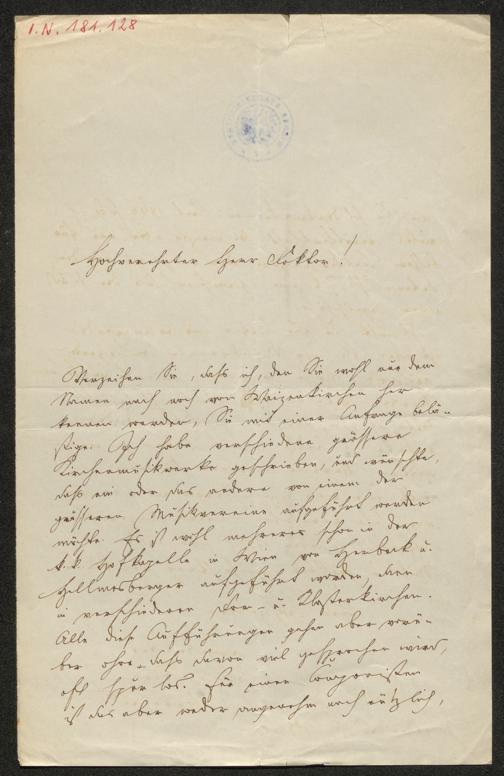 I.N. 181.128
Hochverehrter Herr Doktor!
Verzeihen Sie, daß ich, den Sie wohl nur dem
Namen nach noch von Waizenkirchen her
kennen werden, Sie mit einer Anfrage belä-
stige. Ich habe verschiedene grössere
Kirchenmusikwerke geschrieben, und wünschte,
daß ein oder das andere von einem der
grösseren Musikvereine aufgeführt werden
möchte. Es ist wohl mehreres schon in der
k. k. Hofkapelle in Wien von Herbeck u.
Hellmesberger aufgeführt worden, dann
in verschiedenen Dom- u. Klosterkirchen.
Alle diese Aufführungen gehen aber vorü-
ber ohne daß davon viel gesprochen wird,
oft spurlos. Für einen Componisten
ist das aber weder angenehm noch nützlich,